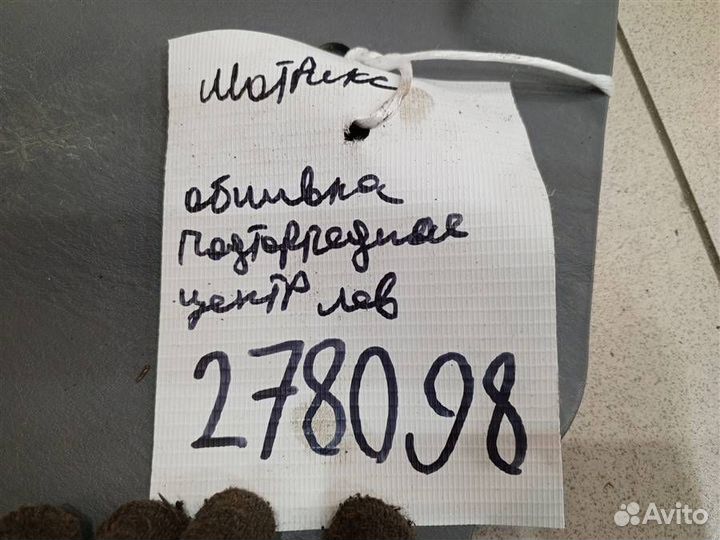 Матрикс
обшивка
подторпедная
центр лев
278098
Avito